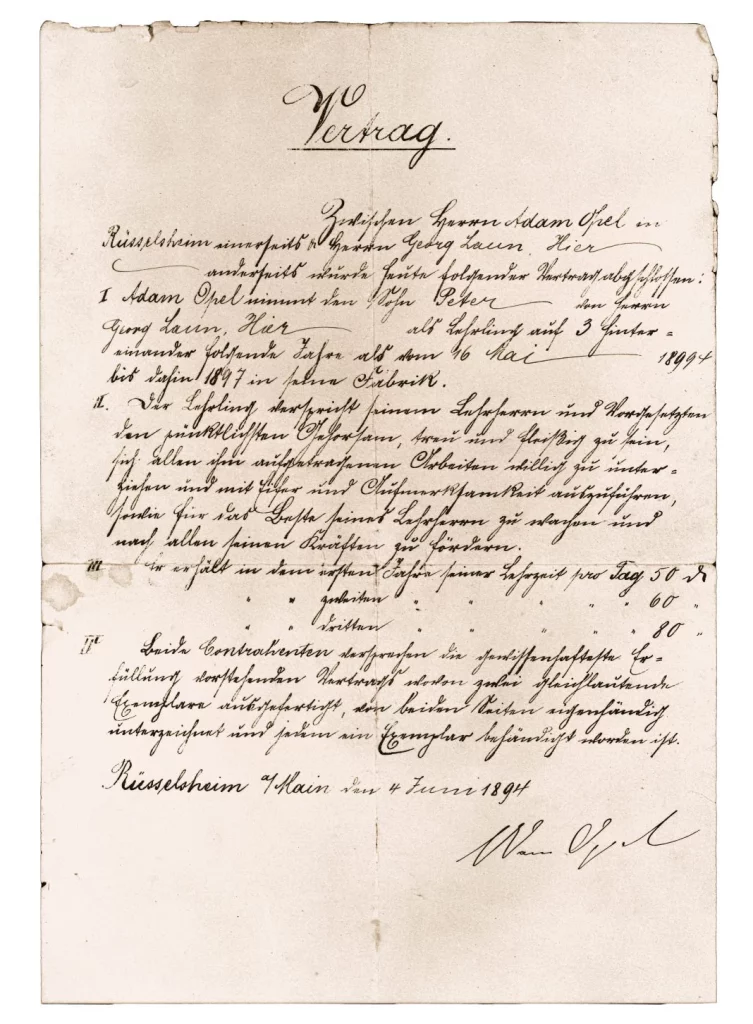 Vertrag.
Zwischen Herrn Adam Opel in
Rüsselsheim einerseits & Herrn Georg Laun, Hier
anderseits wurde heute folgender Vertrag abgeschlossen:
I Adam Opel nimmt den Sohn Peter von Herrn
Georg Laun, Hier als Lehrling auf 3 hinter-
einander folgende Jahre als vom 16 Mai 18994
bis dahin 1897 in seine Fabrik.
II. Der Lehrling verspricht seinem Lehrherrn und Vorgesetzten
den pünktlichsten Gehorsam, treu und fleißig zu sein,
sich allen ihm aufgetragenen Arbeiten willig zu unter-
ziehen und mit Eifer und Aufmerksamkeit auszuführen,
sowie für das Beste seines Lehrherrn zu wachen und
nach allen seinen Kräften zu fördern.
III Er erhält in dem ersten Jahre seiner Lehrzeit pro Tag 50 d
" " zweiten " " " " " 60 "
" " dritten " " " " " 80 "
IV Beide Contrahenten versprechen die gewissenhafteste Er-
füllung vorstehenden Vertrags wovon zwei gleichlautende
Exemplare ausgefertigt, von beiden Seiten eigenhändig
unterzeichnet und jedem ein Exemplar behändigt worden ist.
Rüsselsheim a/Main den 4 Juni 1894
Adam Opel